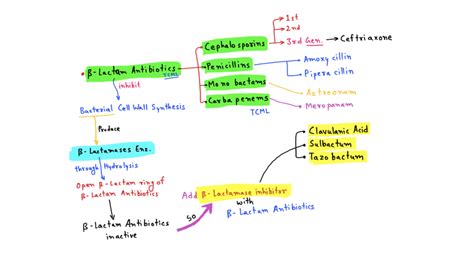 1st
2nd
Cephalosporins
3rd Gen.
Ceftriaxone
β-Lactam Antibiotics
TCML
Penicillins
Amoxy cillin
Pipera cillin
inhibit
Mono bactams
Aztreonam
Bacterial Cell Wall Synthesis
Carba penems
Meropanam
TCML
Produce
Clavulanic Acid
β-Lactamases Enz.
Sulbactum
through Hydrolysis
Tazo bactum
Open β-Lactam ring of
β-Lactam Antibiotics
Add β-Lactamase inhibitor
with
β-Lactam Antibiotics
So
β-Lactam Antibiotics
inactive